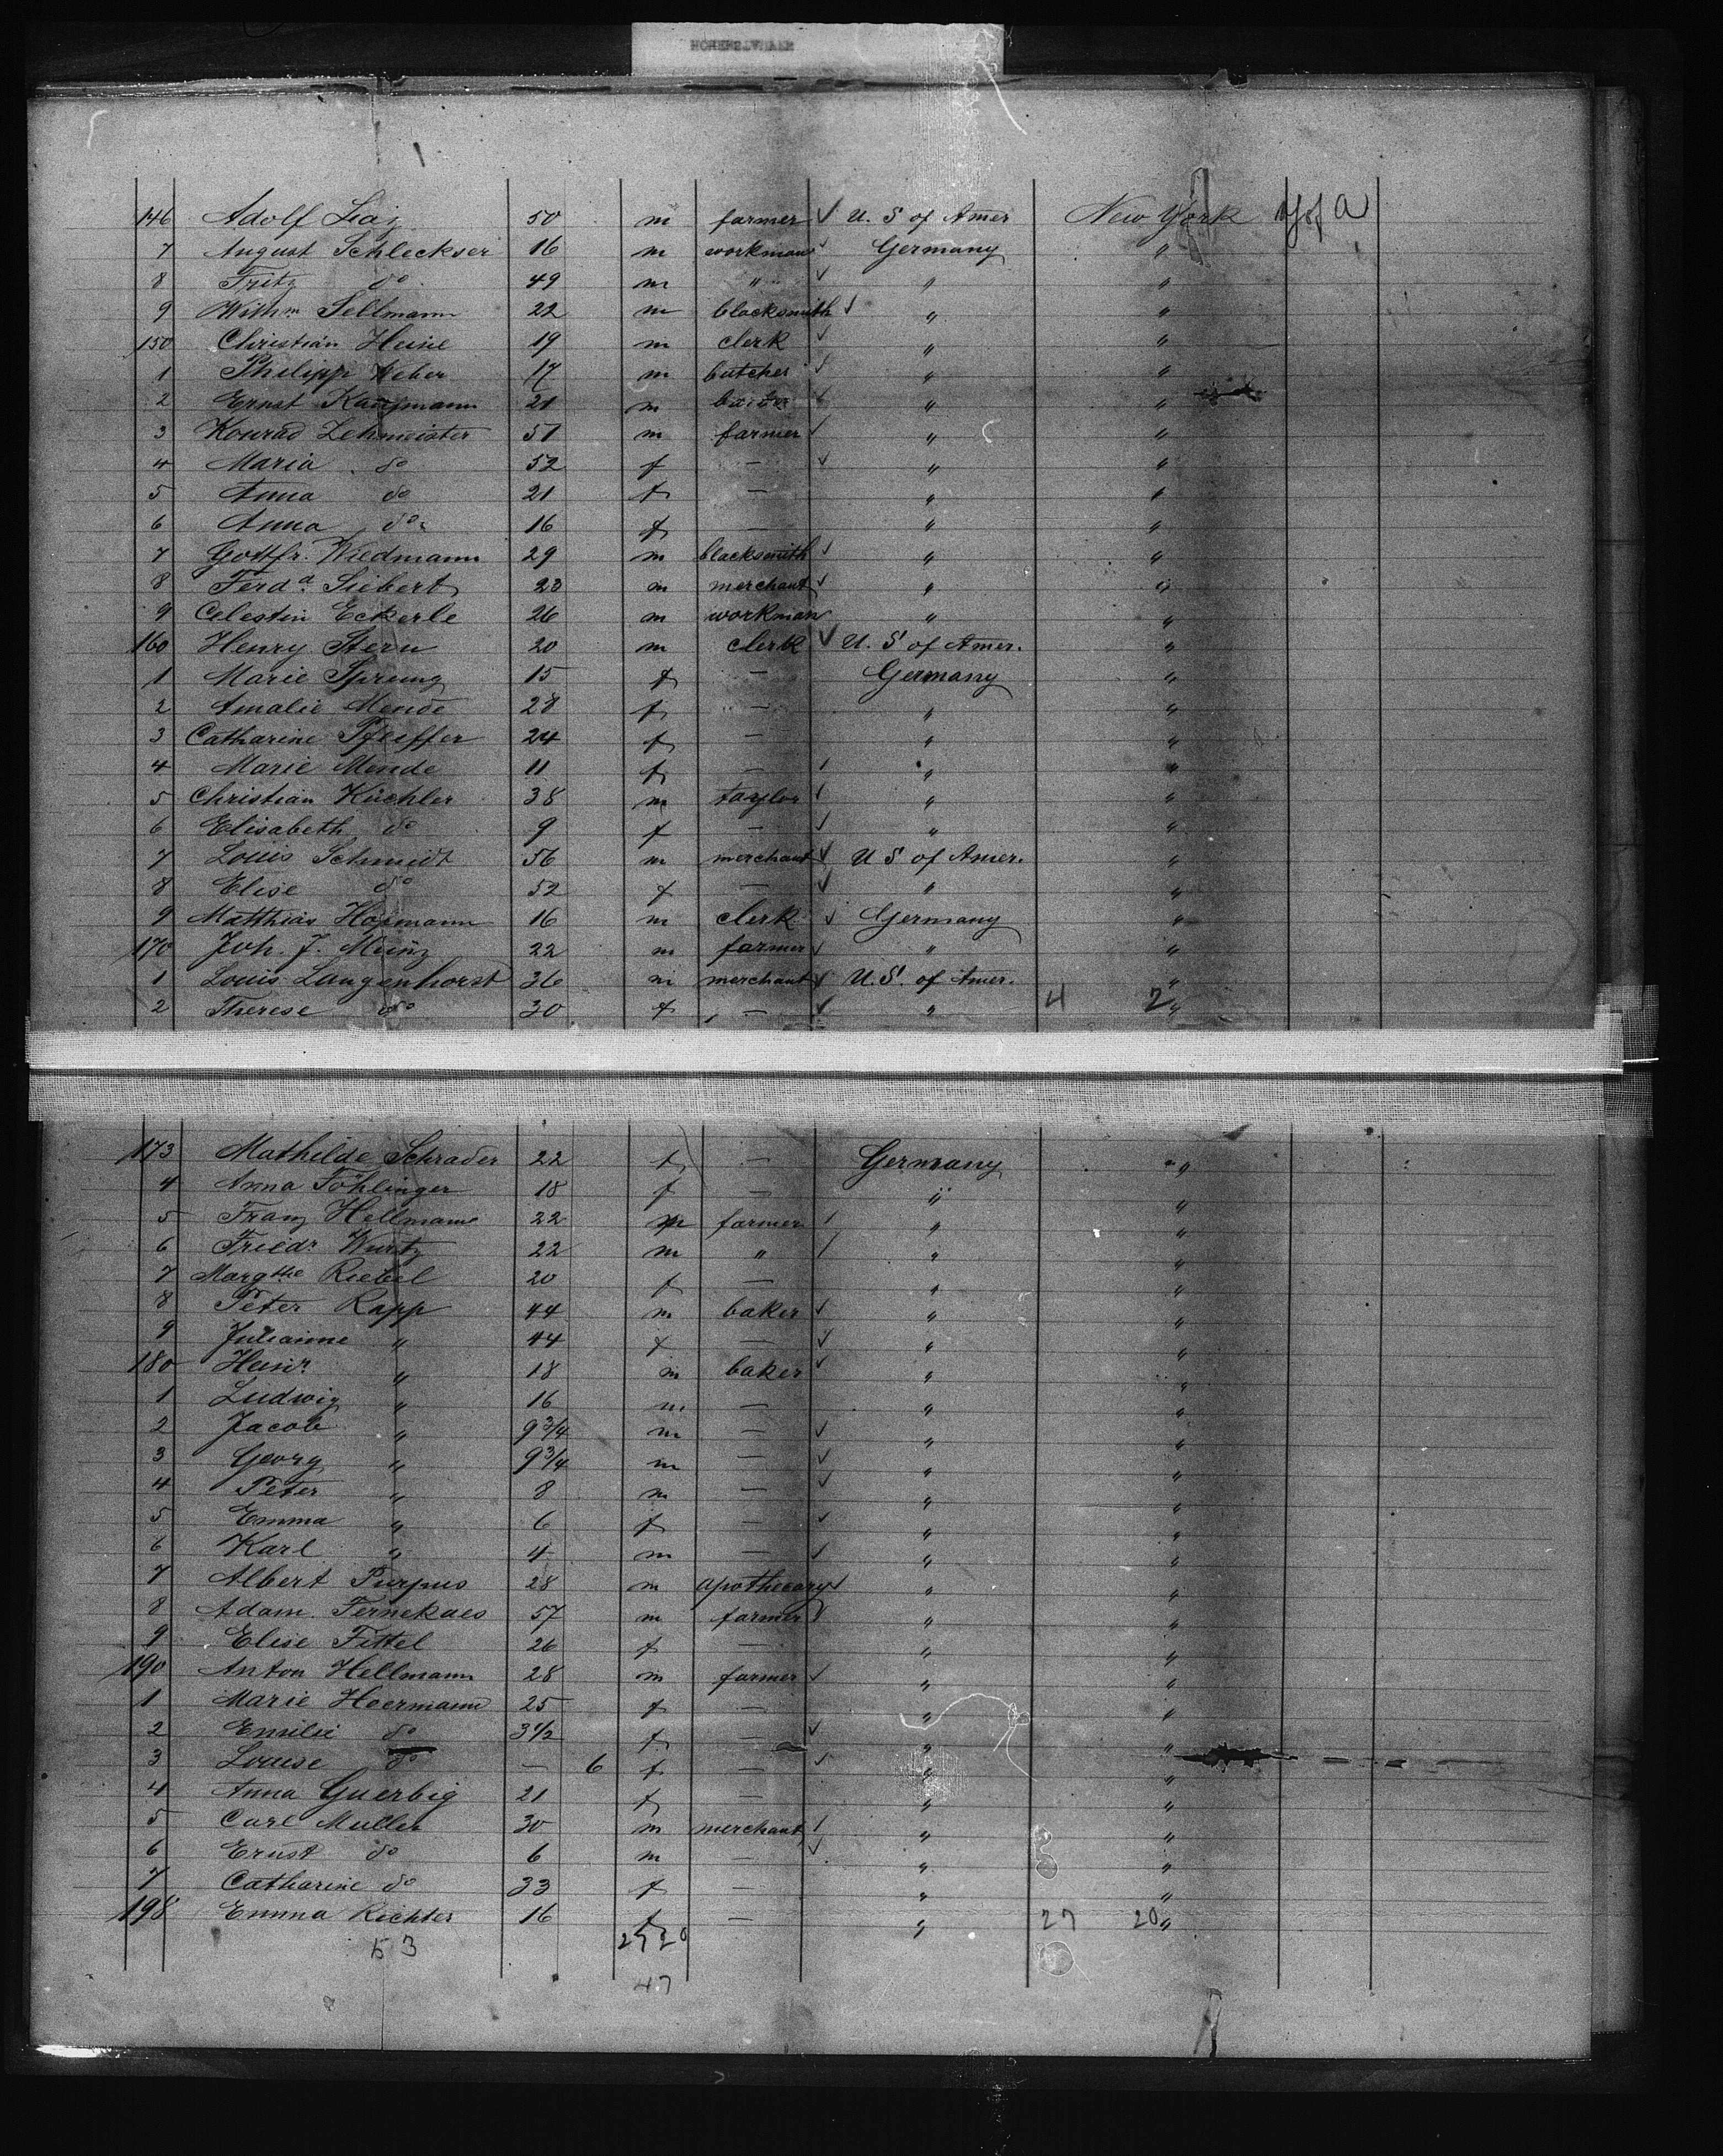 HOHENSTAUFEN
146 Adolf 50 m farmer ✓ U. S of Amer New York
7 August Schleckser 16 m workman ✓ Germany "
8 Fritz do 49 m " ✓ " "
9 Wilhm Sellmann 22 m blacksmith ✓ " "
150 Christian Heine 19 m clerk ✓ " "
1 Philipp Weber 17 m butcher ✓ " "
2 Ernst Kaufmann 21 m ✓ " "
3 Konrad Zehmeister 51 m farmer ✓ " "
4 Maria do 52 f — ✓ " "
5 Anna do 21 f — " "
6 Anna do 16 f — " "
7 Gottfr. Wiedmann 29 m blacksmith ✓ " "
8 Ferdd Siebert 23 m merchant ✓ " "
9 Celestin Eckerle 26 m workman " "
160 Henry Stern 20 m clerk ✓ U. S of Amer. "
1 Marie Sprung 15 f — Germany "
2 Amalie Mende 28 f — " "
3 Catharine Pfeiffer 24 f — " "
4 Marie Mende 11 f — ✓ " "
5 Christian Küchler 38 m taylor ✓ " "
6 Elisabeth do 9 f — ✓ " "
7 Louis Schmidt 56 m merchant ✓ U S of Amer. "
8 Elise do 52 f — ✓ " "
9 Matthias Hofmann 16 m clerk ✓ Germany "
170 Joh. J. Meinz 22 m farmer ✓ " "
1 Louis Langenhorst 36 m merchant ✓ U. S. of Amer. "
2 Therese do 30 f — ✓ " 4 2 "
173 Mathilde Schrader 22 f — Germany "
4 Anna Föhlinger 18 f — " "
5 Franz Hellmann 22 m farmer ✓ " "
6 Friedr Wurtz 22 m " ✓ " "
7 Margthe Riebel 20 f — " "
8 Peter Rapp 44 m baker ✓ " "
9 Julianne " 44 f — ✓ " "
180 Heinr " 18 m baker ✓ " "
1 Ludwig " 16 m — " "
2 Jacob " 9 3/4 m — ✓ " "
3 Georg " 9 3/4 m — ✓ " "
4 Peter " 8 m — ✓ " "
5 Emma " 6 f — ✓ " "
6 Karl " 4 m — ✓ " "
7 Albert Purpus 28 m apothecary ✓ " "
8 Adam Fernekaes 57 m farmer ✓ " "
9 Elise Fittel 26 f — " "
190 Anton Hellmann 28 m farmer ✓ " "
1 Marie Hoermann 25 f — " "
2 Emilie do 3 1/2 f — ✓ " "
3 Louise do — 6 f — ✓ " "
4 Anna Guerbig 21 f — " "
5 Carl Muller 30 m merchant ✓ " "
6 Ernst do 6 m — ✓ " "
7 Catharine do 33 f — " "
198 Emma Richter 16 f — " 27 20 "
53 27 20
47